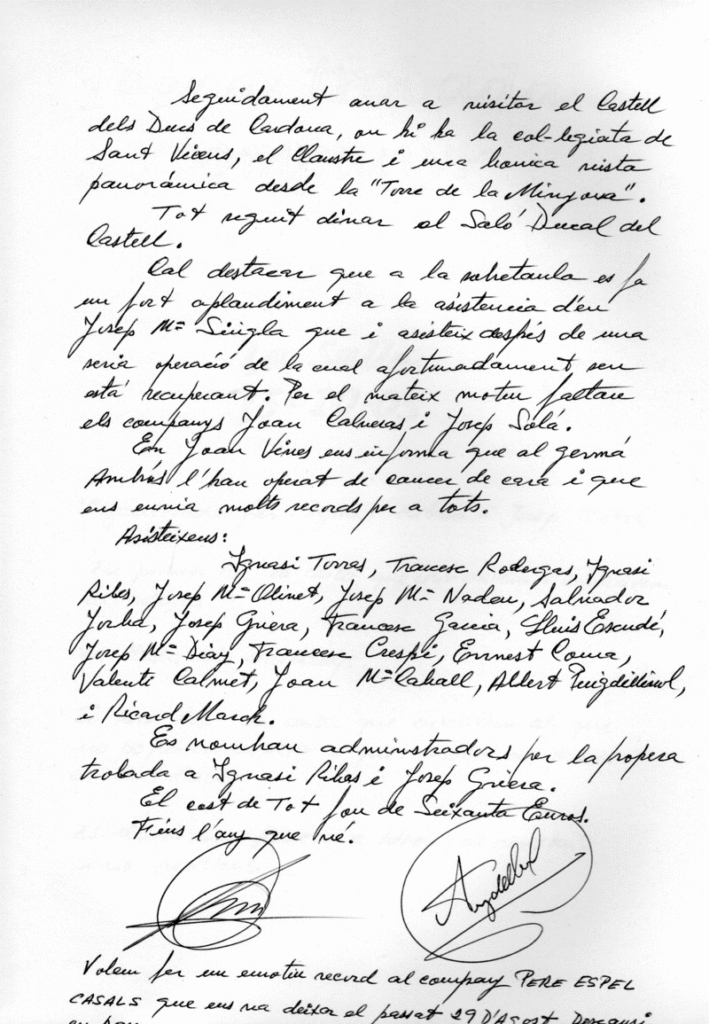 Seguidament anar a visitar el Castell
dels Ducs de Cardona, on hi ha la col-legiata de
Sant Vicens, el Claustre i una bonica vista
panorámica desde la "Torre de la Minyona".
Tot seguit dinar al Saló Ducal del
Castell.
Cal destacar que a la sobretaula es fa
un fort aplaudiment a la asistencia d'en
Josep Mª Singla que i asisteix després de una
seria operació de la cual afortunadament sen
está recuperant. Per el mateix motiu faltan
els companys Joan Calveras i Josep Solá.
En Joan Vives ens informa que al germá
Ambrós l'han operat de cancer de cara i que
ens envia molts records per a tots.
Asisteixens:
Ignasi Torras, Francesc Rodergas, Ignasi
Ribes, Josep Mª Olinet, Josep Mª Nadeu, Salvador
Jorba, Josep Griera, Francesc Garcia, Lluis Escudé,
Josep Mª Diay, Francesc Crespi, Ernest Coma,
Valenti Calmet, Joan Mª Caball, Albert
i Ricard March.
Es nomban adminstradors per la propera
trobada a Ignasi Ribas i Josep Griera.
El cost de Tot fou de Seixanta Euros.
Fins l'any que vé.
Volem fer un emotiu record al company PERE ESPEL
CASALS que ens va deixar el passat 29 D'Agost Descansi
en pau